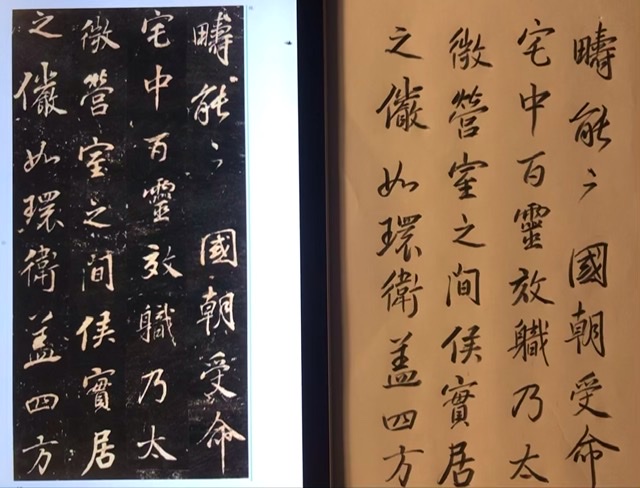 疇能〻國朝受命
宅中百靈效職乃太
微營室之間侯實居
之儼如環衛盖四方
疇能〻國朝受命
宅中百靈效職乃太
微營室之間侯實居
之儼如環衛盖四方